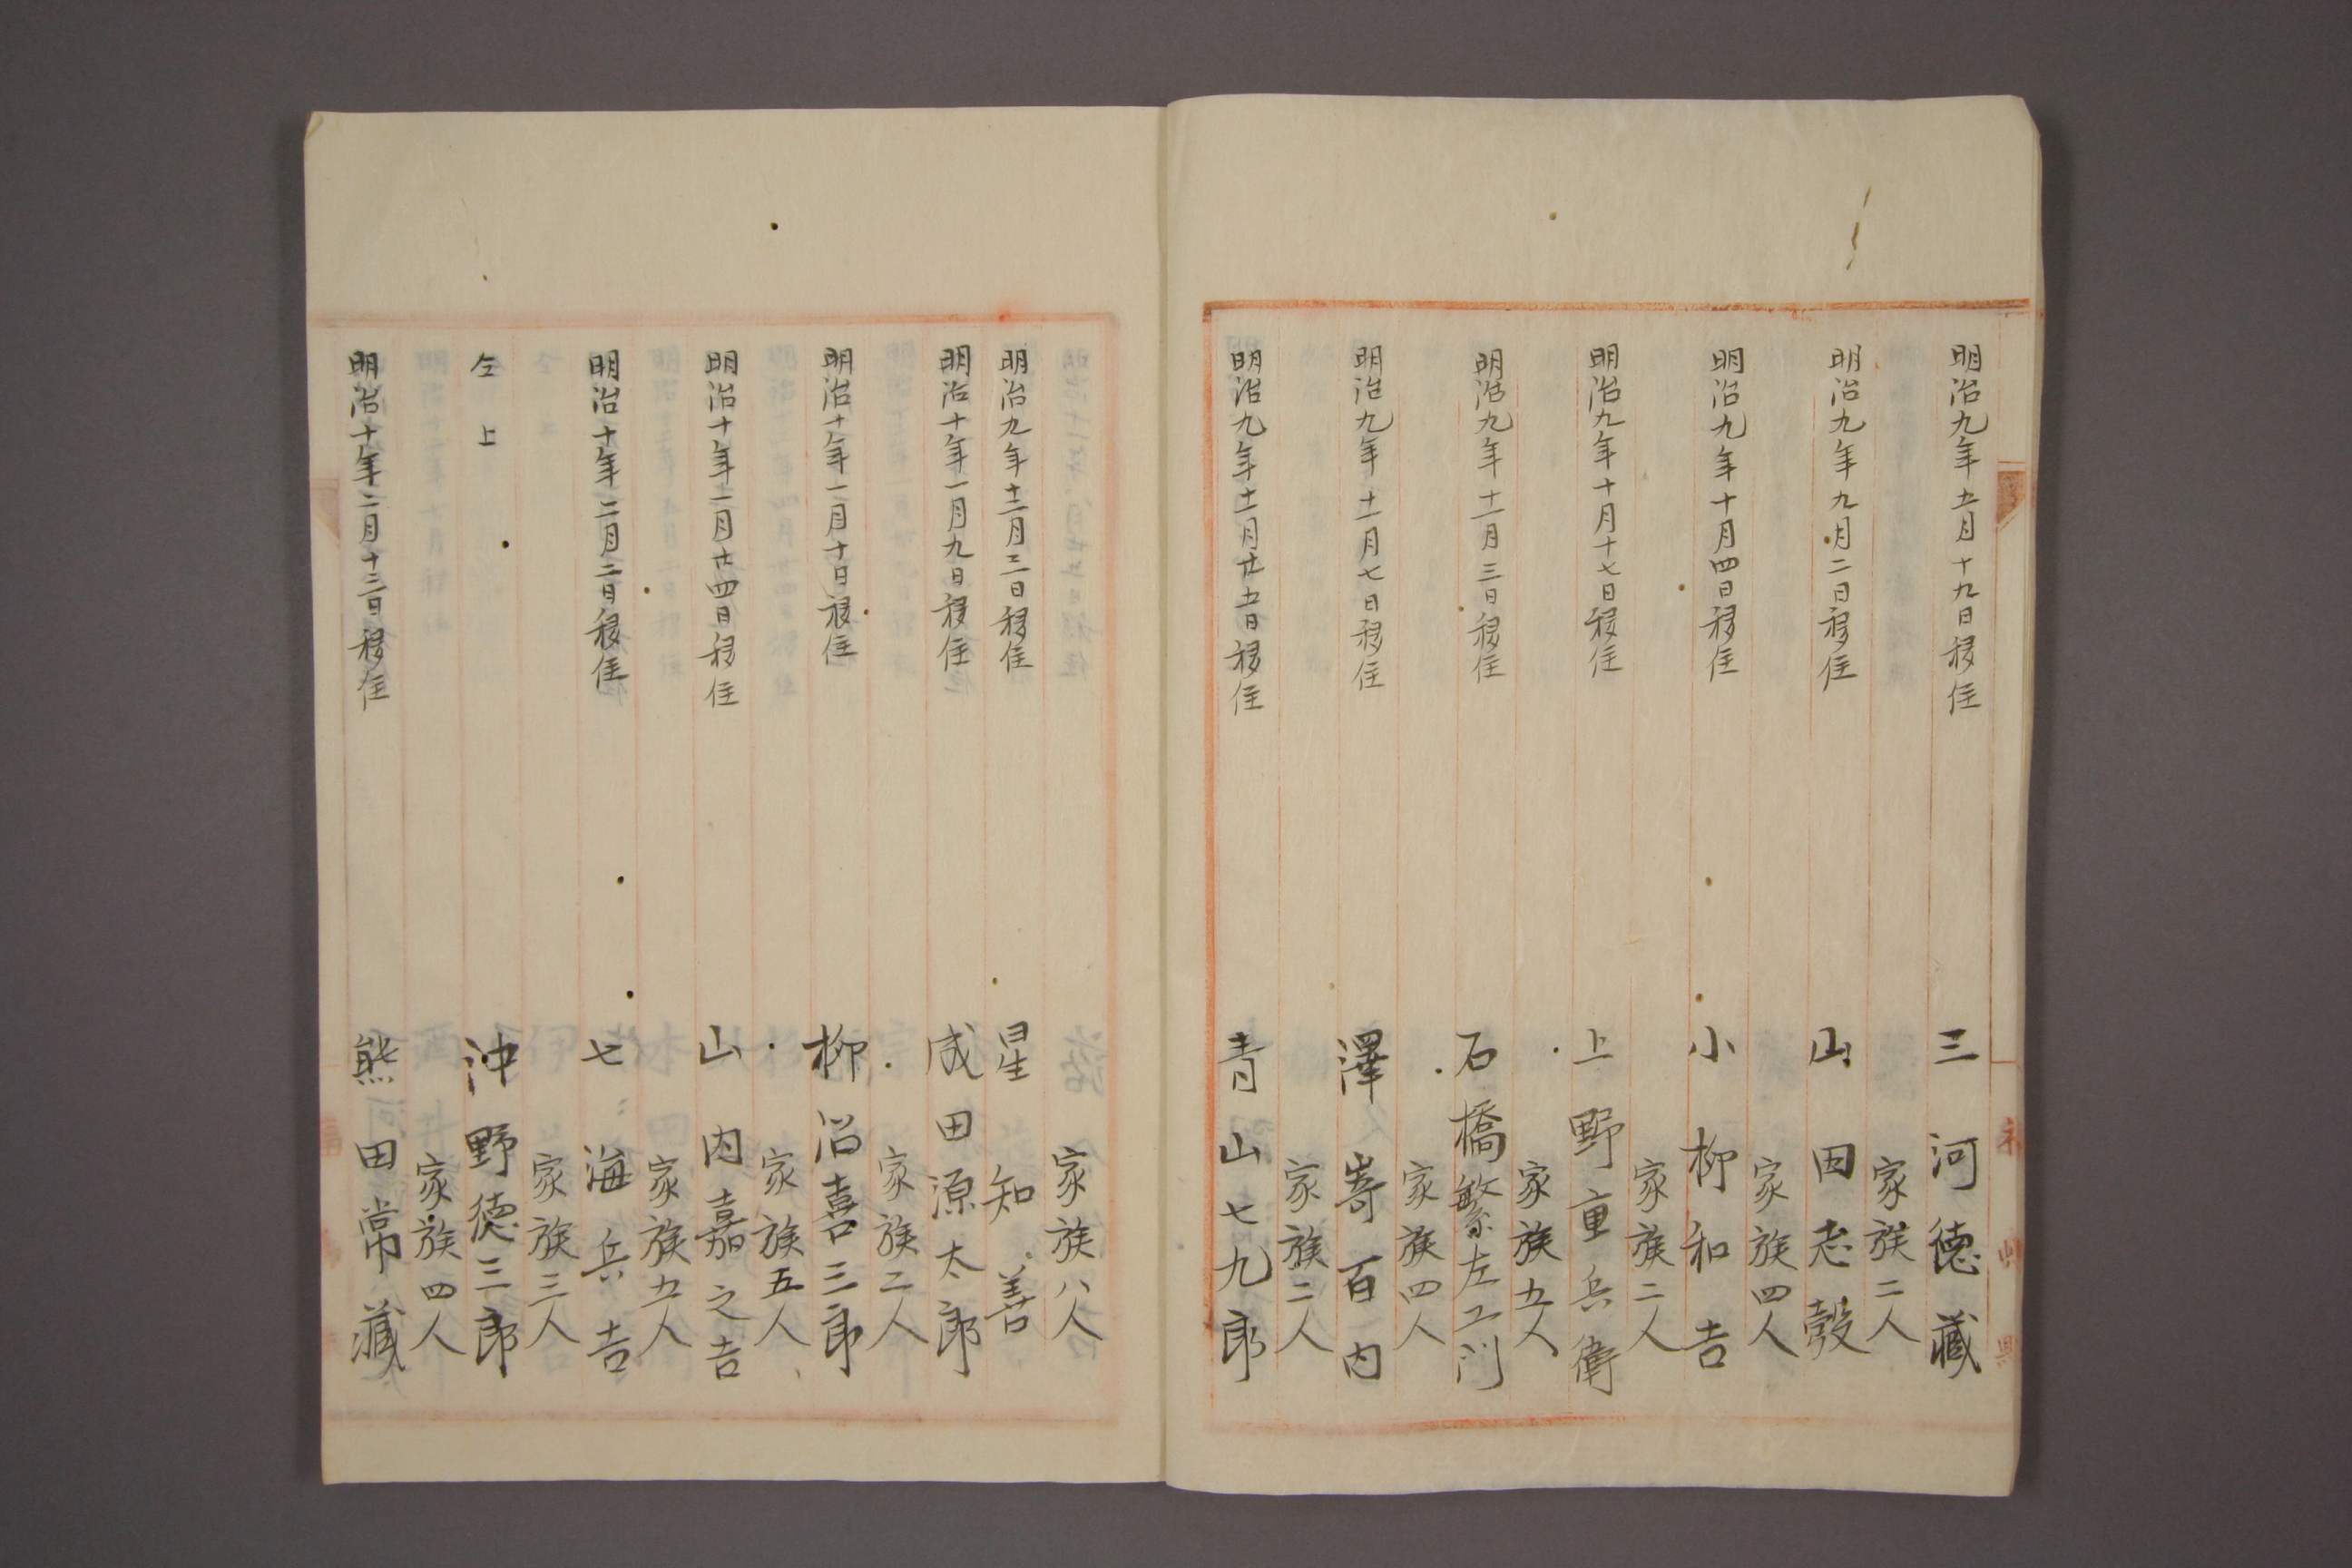 明治九年五月十九日移住　三河徳藏
家族二人
明治九年九月二日移住　山田志穀
家族四人
明治九年十月四日移住　小柳和吉
家族二人
明治九年十月十七日移住　上野重兵衛
家族五人
明治九年十一月三日移住　石橋繁左エ門
家族四人
明治九年十一月七日移住　澤嵜百内
家族二人
明治九年十一月廿五日移住　青山七九郎
家族八人
明治九年十二月三日移住　星知善
明治十年一月九日移住　成田源太郎
家族二人
明治十年一月十日移住　柳沼喜三郎
家族五人
明治十年一月廿四日移住　山内嘉之吉
家族五人
明治十年二月二日移住　七海兵吉
家族三人
仝上　沖野徳三郎
家族四人
明治十年二月十二日移住　熊田常藏